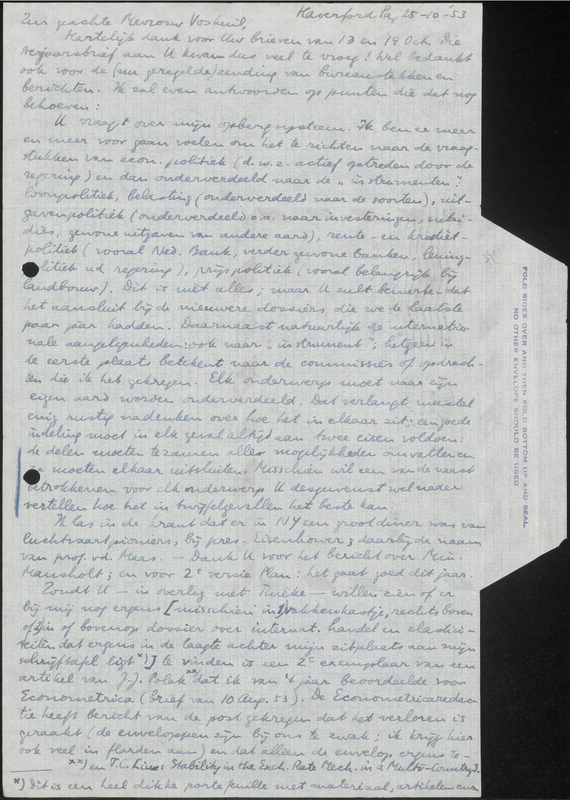 Haverford Pa, 25-10-'53
Zeer geachte Mevrouw Voskuil,
Hartelijk dank voor Uw brieven van 13 en 19 Oct. Die
verjaarsbrief aan U kwam dus veel te vroeg! Wel bedankt
ook voor de (nu geregelde) zending van bureau-stukken en
berichten. Ik zal even antwoorden op punten die dat nog
behoeven:
U vraagt over mijn opbergsysteem. Ik ben er meer
en meer voor gaan voelen om het te richten naar de vraag-
stukken van econ. politiek (d.w.z. actief optreden door de
regering) en dan onderverdeeld naar de "instrumenten":
loonpolitiek, belasting (onderverdeeld naar de soorten), uit-
gavenpolitiek (onderverdeeld o.a. naar investeringen, subsi-
dies, gewone uitgaven van andere aard), rente- en krediet-
politiek (vooral Ned. Bank, verder gewone banken, lenings-
politiek v.d. regering), prijspolitiek (vooral belangrijk bij
landbouw). Dit is niet alles; maar U zult bemerken dat
het aansluit bij de nieuwere dossiers die we de laatste
paar jaar hadden. Daarnaast natuurlijk de internatio-
nale aangelegenheden: ook naar "instrument"; hetgeen in
de eerste plaats betekent naar de commissies of opdrach-
ten die ik heb gekregen. Elk onderwerp moet naar zijn
eigen aard worden onderverdeeld. Dat verlangt meestal
enig rustig nadenken over hoe het in elkaar zit; een goede
indeling moet in elk geval altijd aan twee eisen voldoen:
de delen moeten tezamen alle mogelijkheden omvatten en
ze moeten elkaar uitsluiten. Misschien wil een van de naast
betrokkenen voor elk onderwerp U desgewenst wel nader
vertellen hoe het in twijfelgevallen het beste kan.
Ik las in de krant dat er in NY een groot diner was van
luchtvaartpioniers, bij pres. Eisenhower; daarbij de naam
van prof. v.d. Maas. — Dank U voor het bericht over Min.
Mansholt; en voor 2e versie Plan: het gaat goed dit jaar.
Zoudt U — in overleg met — willen zien of er
bij mij nog ergens [misschien in 1) vakkenkastje, rechts boven
of 2) in of bovenop dossier over internat. handel en elastici-
teiten dat ergens in de laagte achter mijn zitplaats aan mijn
schrijftafel ligt x)] te vinden is een 2e exemplaar van een
artikel van J.J. Polak xx) dat ik van 't jaar beoordeelde voor
Econometrica (brief van 10 Aug. 53). De Econometricaredac-
tie heeft bericht van de post gekregen dat het verloren is
geraakt (de enveloppen zijn bij ons te zwak; ik krijg hier
ook veel in flarden aan) en dat alleen de envelop ergens te-
xx) en T.C. Liu: Stability in the Exch. Rate Mech. in a Multi-Country S.
x) Dit is een heel dikke portefeuille met materiaal, artikelen enz
FOLD SIDES OVER AND THEN FOLD BOTTOM UP AND SEAL
NO OTHER ENVELOPE SHOULD BE USED